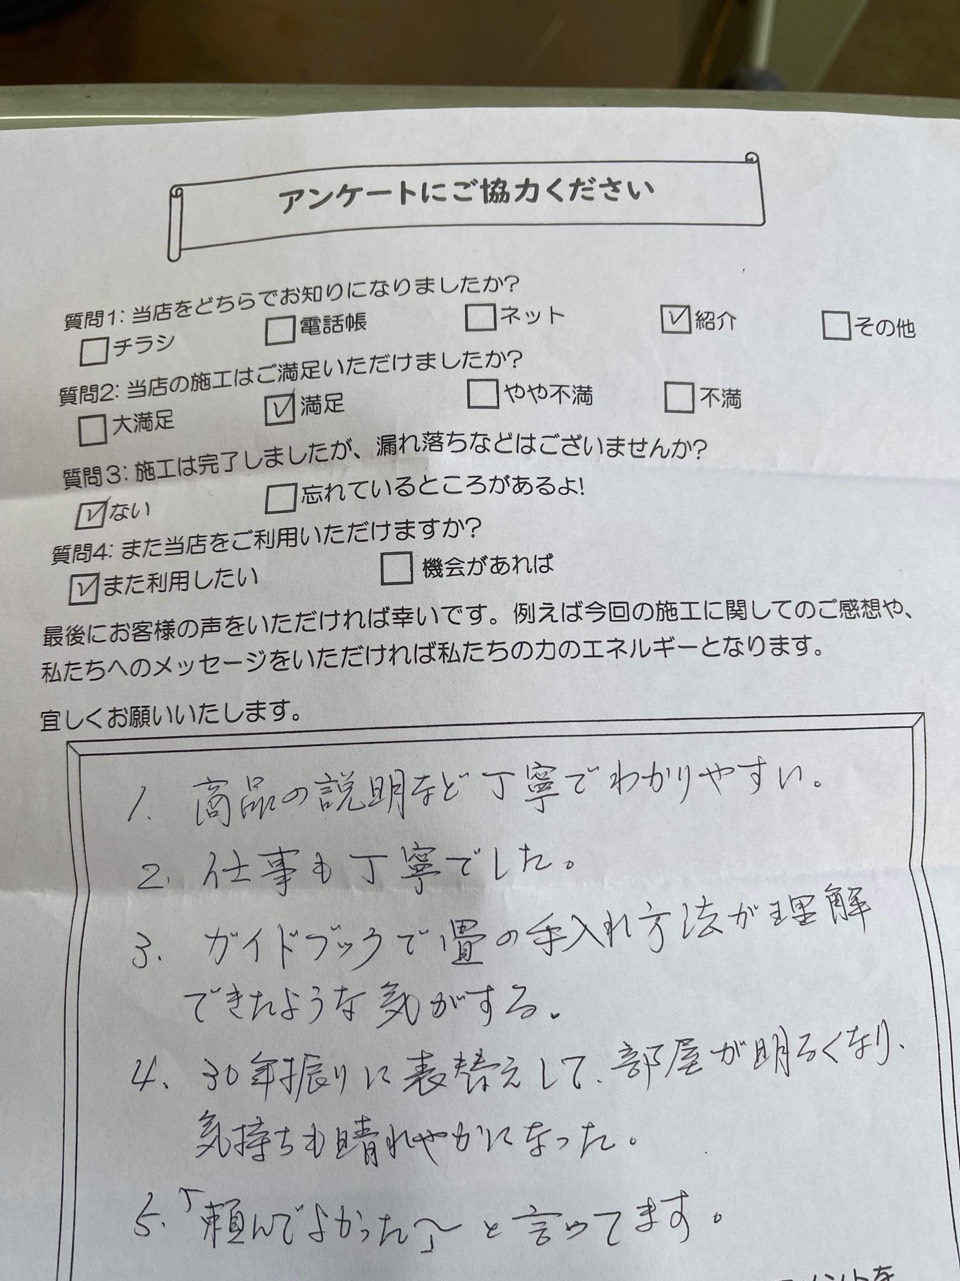 アンケートにご協力ください
質問1: 当店をどちらでお知りになりましたか?
チラシ 電話帳 ネット 紹介 その他
質問2: 当店の施工はご満足いただけましたか?
大満足 満足 やや不満 不満
質問3: 施工は完了しましたが、漏れ落ちなどはございませんか?
ない 忘れているところがあるよ!
質問4: また当店をご利用いただけますか?
また利用したい 機会があれば
最後にお客様の声をいただければ幸いです。例えば今回の施工に関してのご感想や、
私たちへのメッセージをいただければ私たちの力のエネルギーとなります。
宜しくお願いいたします。
1. 商品の説明など丁寧でわかりやすい。
2. 仕事も丁寧でした。
3. ガイドブックで畳の手入れ方法が理解
できたような気がする。
4. 30年振りに表替えして、部屋が明るくなり、
気持ちも晴れやかになった。
5. 「頼んでよかった〜」と言ってます。